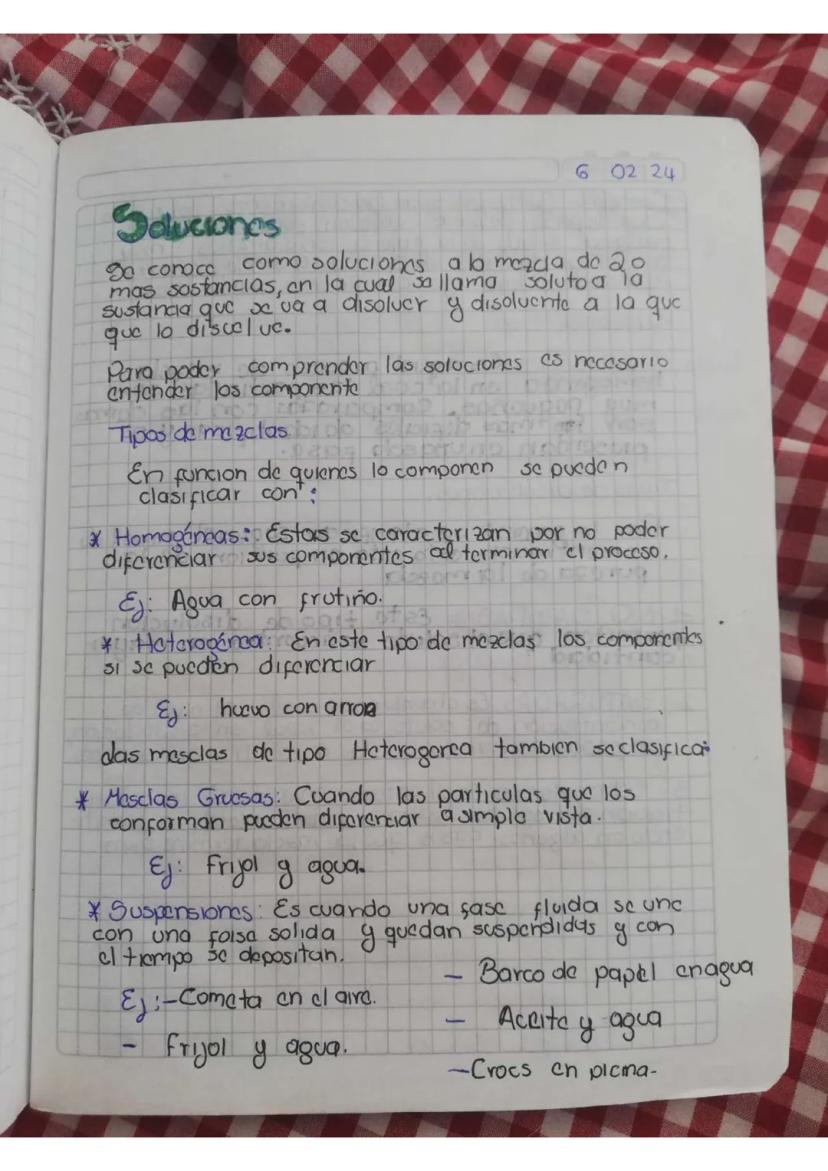 6 02 24
Soluciones
Se conoce como soluciones a la mezcla de 2 o
mas sostancias, en la cual se llama soluto a la
sustancia que se va a disolver y disolvente a la que
que lo discelve.
Para poder comprender las soluciones es necesario
entender los componente
Tipos de mezclas
En funcion de quienes lo componen se pueden
clasificar con:
* Homogéneas: Estas se caracterizan por no poder
diferenciar sus componentes al terminar el proceso.
Ej: Agua con frutiño.
* Heterogénea: En este tipo de mezclas los componentes
si se pueden diferenciar
Ej: huevo con arroz
las mesclas de tipo Heterogenea tambien se clasifica:
* Mesclas Gruesas: Cuando las particulas que los
conforman pueden diferenciar a simple vista.
Ej: Frijol y agua.
* Suspensiones: Es cuando una fase fluida se une
con una faisa solida y quedan suspendidas y con
el tiempo se depositan.
Ej: - Cometa en el aire.
- Frijol y agua.
- Barco de papel en agua
- Aceite y agua
- Crocs en picina-